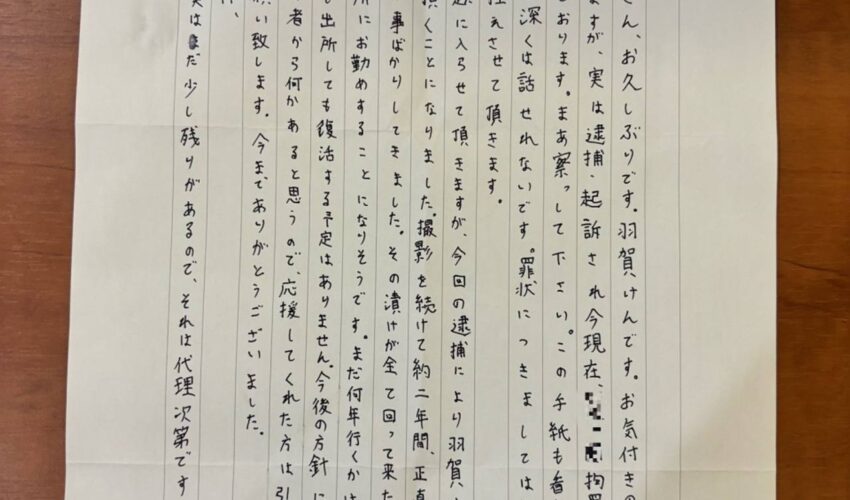 さん、お久しぶりです。羽賀けんです。お気付きの
ますが、実は逮捕・起訴され今現在、拘
しております。まあ察っして下さい。この手紙も看
深くは話せれないです。罪状につきましては
控えさせて頂きます。
に入らせて頂きますが、今回の逮捕により羽賀
頂くことになりました。撮影を続けて約二年間、正直
事ばかりしてきました。その漬けが全て回って来た
所にお勤めすることになりそうです。まだ何年行くかは
出所しても復活する予定はありません。今後の方針に
者から何かあると思うので、応援してくれた方は引
願い致します。今までありがとうございました。
実はまだ少し残りがあるので、それは代理次第です